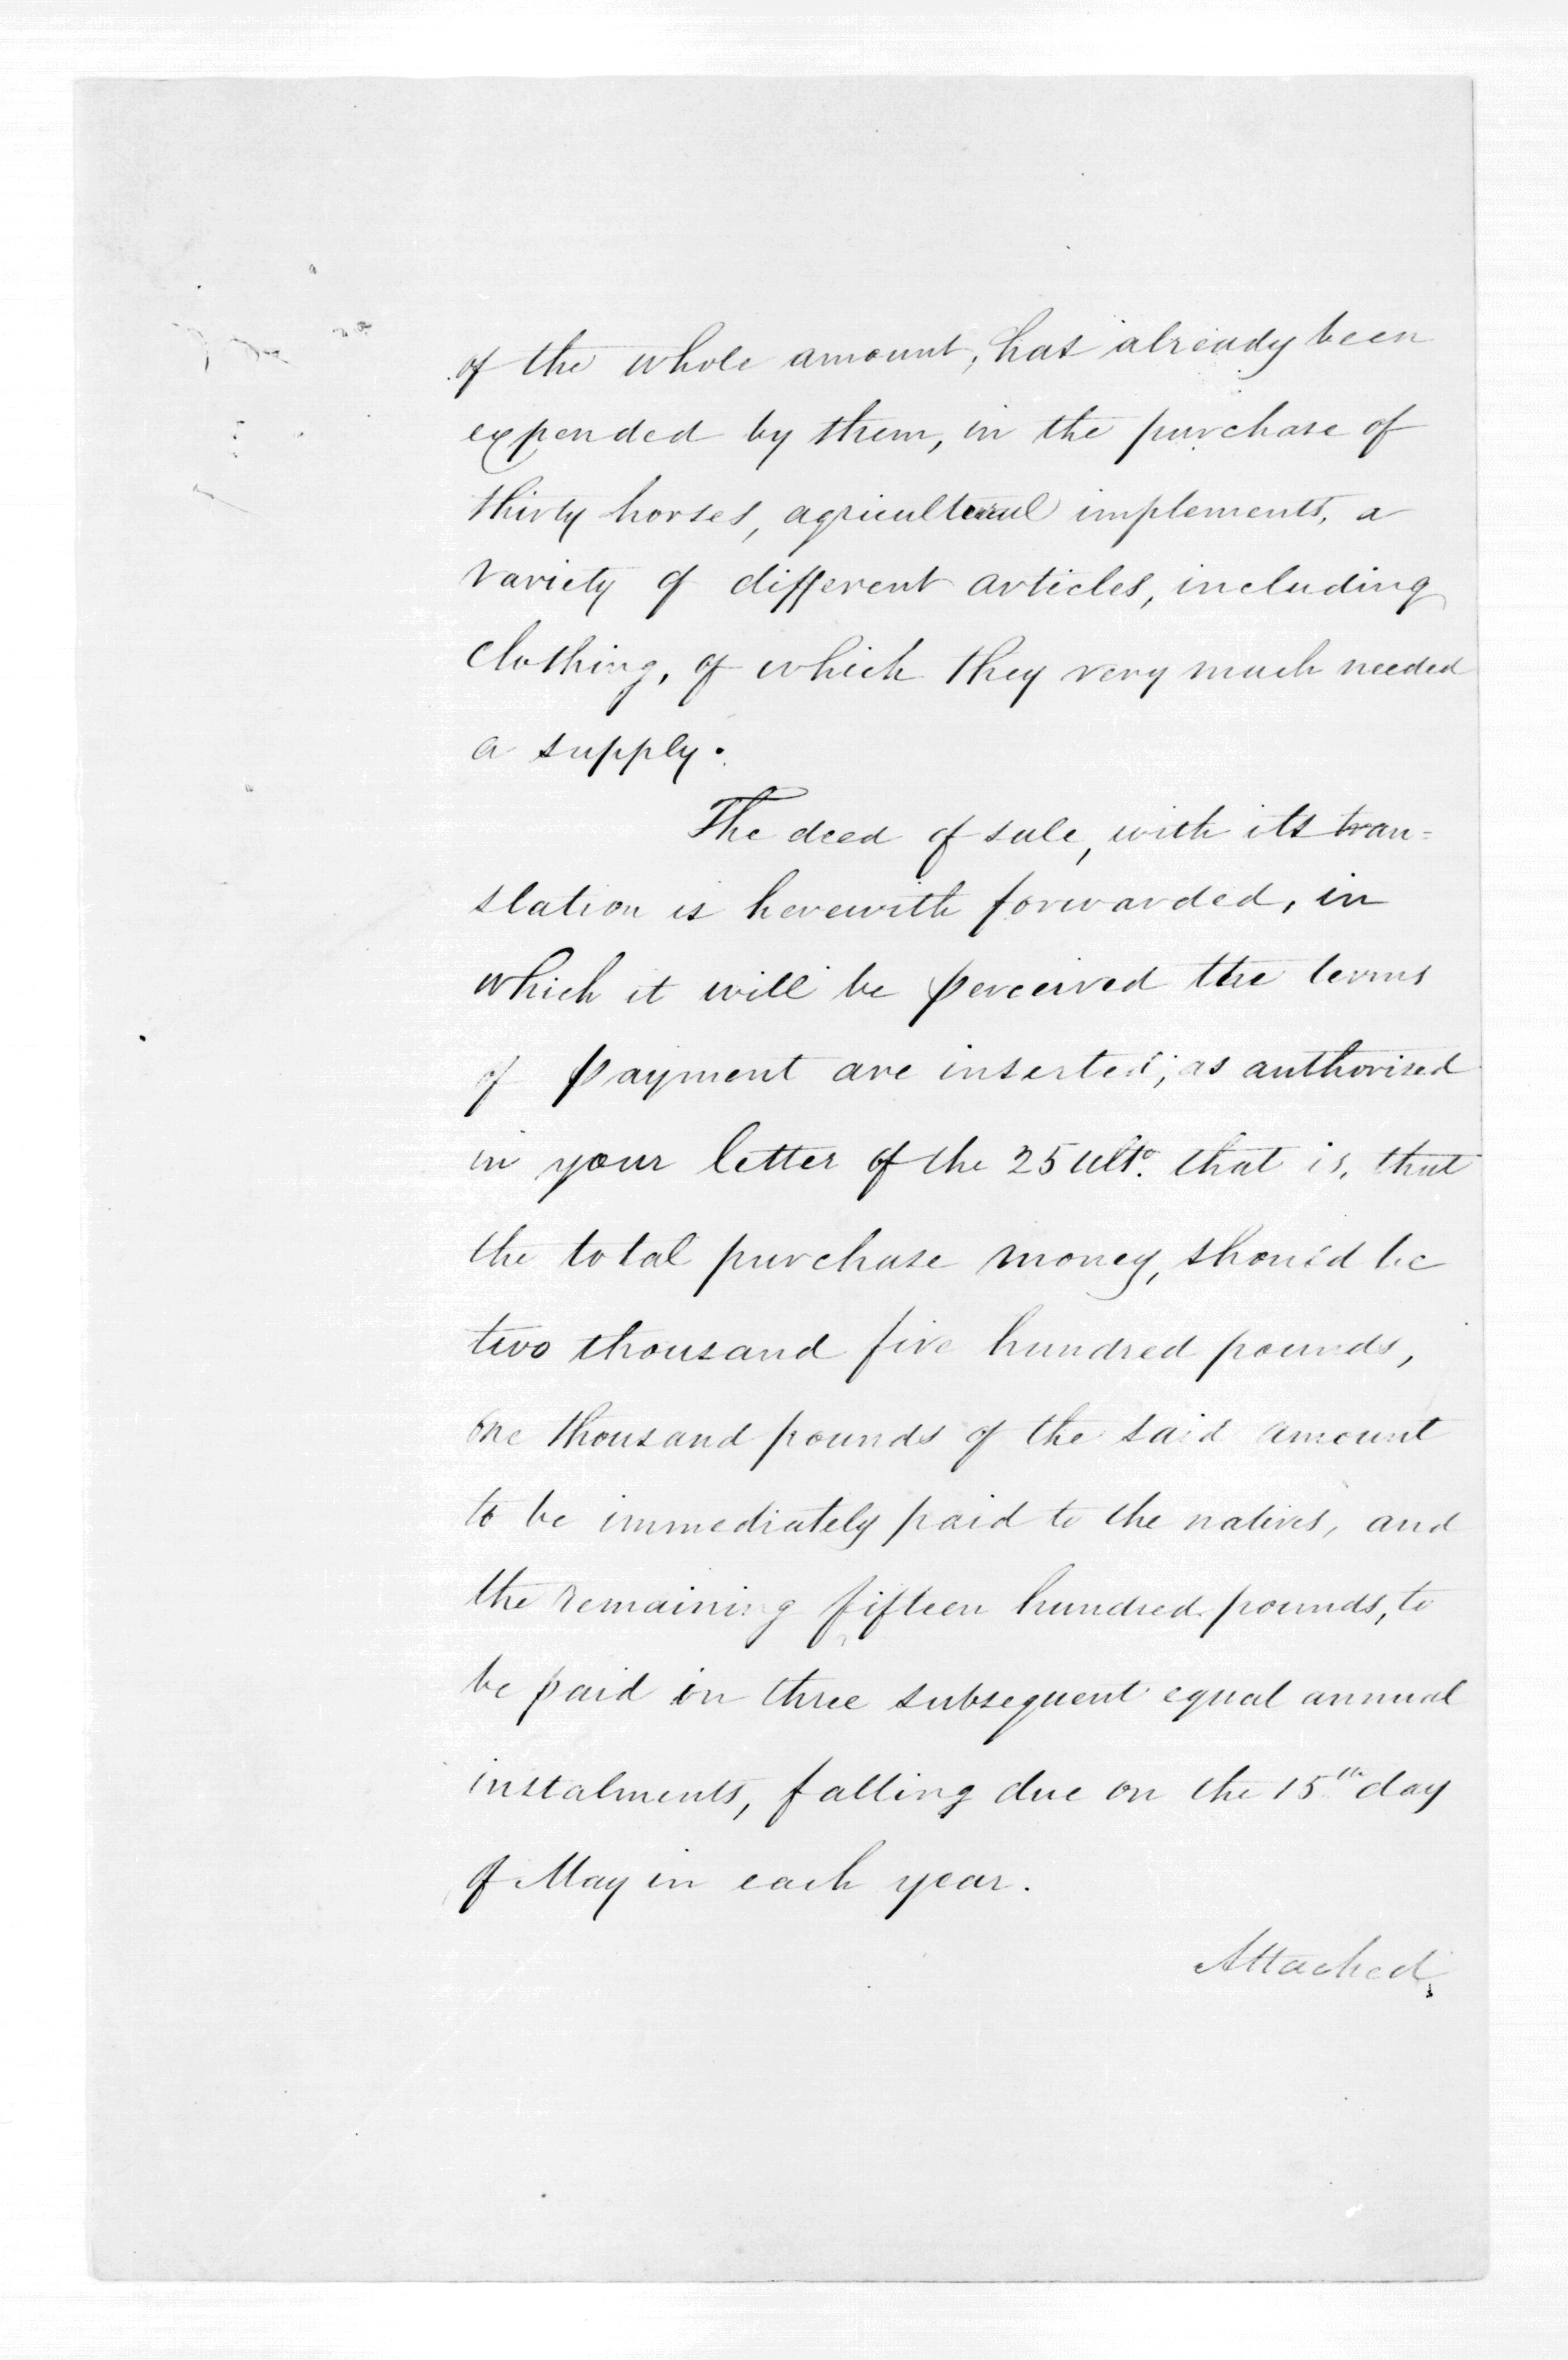 of the whole amount, has already been
expended by them, in the purchase of
thirty horses, agricultural implements, a
variety of different articles, including
clothing, of which they very much needed
a supply.
The deed of sale, with its tran=
slation is herewith forwarded, in
which it will be perceived the terms
of payment are inserted, as authorised
in your letter of the 25 ulto. that is, that
the total purchase money, should be
two thousand five hundred pounds,
one thousand pounds of the said amount
to be immediately paid to the natives, and
the remaining fifteen hundred pounds, to
be paid in three subsequent equal annual
instalments, falling due on the 15th day
of May in each year.
Attached,